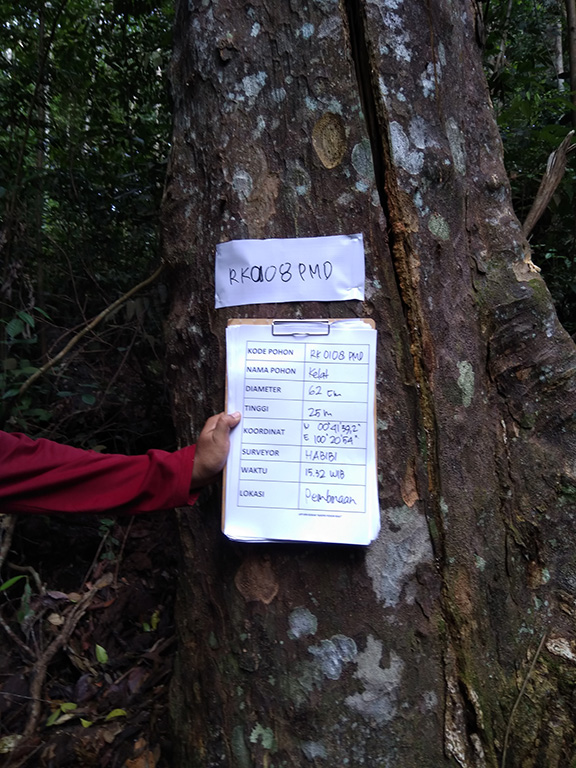 RK0108 PMD
KODE POHON RK 0108 PMD
NAMA POHON Kelat
DIAMETER 62 cm
TINGGI 25 m
KOORDINAT N 00°41'39,2" E 100°20'54"
SURVEYOR HABIBI
WAKTU 15.32 WIB
LOKASI Pembinaan